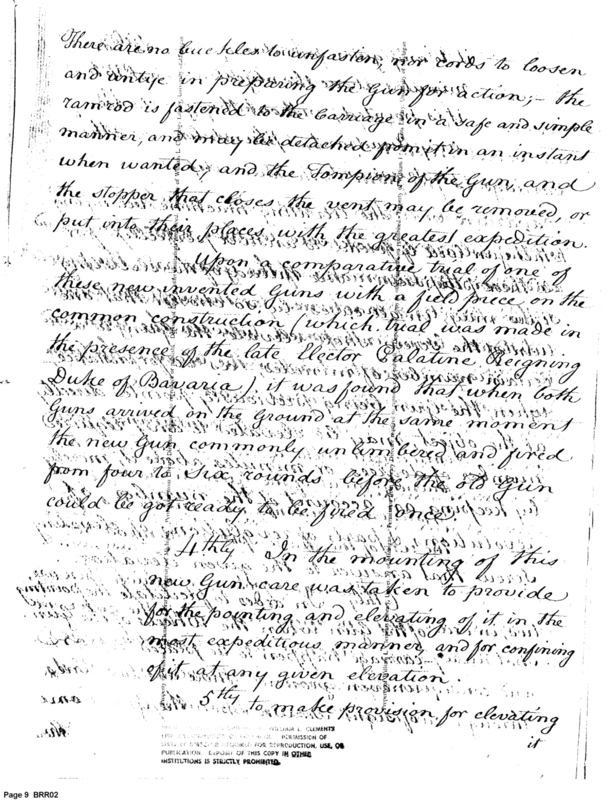 There are no buckles to unfasten, nor cords to loosen
and untye in preparing the Gun for action; – the
ramrod is fastened to the Carriage in a safe and simple
manner, and may be detached from it in an instant
when wanted; and the Tompion of the Gun, and
the stopper that closes the vent may be removed, or
put into their places with the greatest expedition.
Upon a comparative trial of one of
these new invented Guns with a field piece on the
common construction (which trial was made in
the presence of the late Elector Palatine Reigning
Duke of Bavaria) it was found that when both
Guns arrived on the Ground at the same moment
the new Gun commonly unlimbered and fired
from four to six rounds before the old Gun
could be got ready to be fired once.
4thly In the mounting of this
new Gun care was taken to provide
for the pointing and elevating of it in the
most expeditious manner, and for confining
of it at any given elevation.
5thly to make provision for elevating
it
WILLIAM L. CLEMENTS
PERMISSION OF
FOR REPRODUCTION, USE, OR
PUBLICATION. DEPOSIT OF THIS COPY IN OTHER
INSTITUTIONS IS STRICTLY PROHIBITED.
Page 9 BRR02